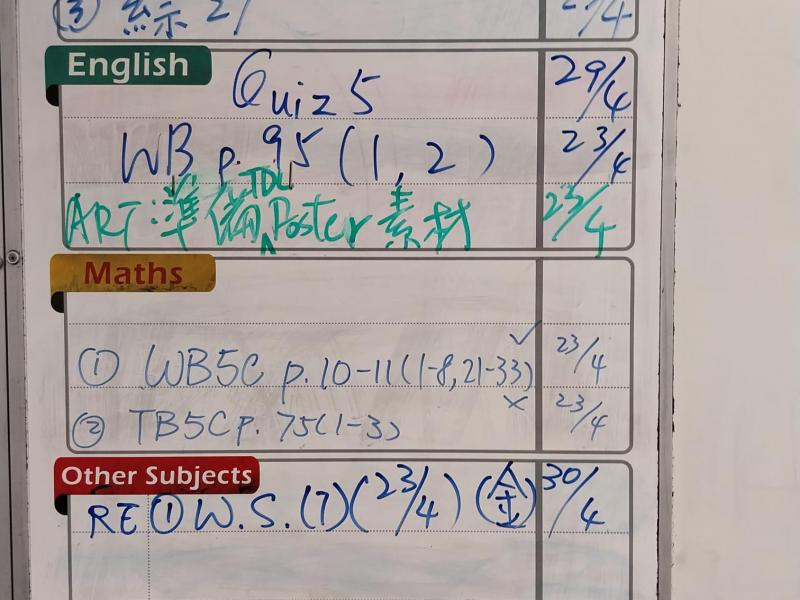 ③ 綜 21
English
Quiz 5 29/4
WB p. 95 (1, 2) 23/4
ART: 準備 TDC Poster 素材 23/4
Maths
① WB5C p. 10-11 (1-8, 21-33) ✓ 23/4
② TB5C p. 75 (1-3) × 23/4
Other Subjects
RE ① W.S. (7) (23/4) (金) 30/4